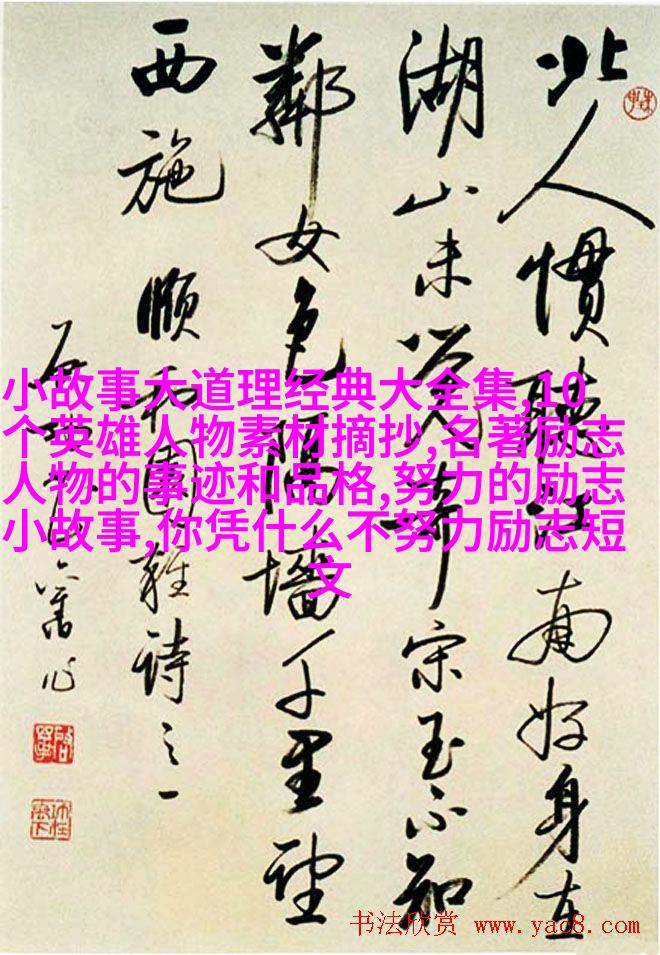 北人慣聽江南好身在
湖山未覺奇宋玉不知
鄰女色隔墻千里望
西施 頤和園雜詩之一
舊作
小故事大道理经典大全集,10
个英雄人物素材摘抄,名著励志
人物的事迹和品格,努力的励志
小故事,你凭什么不努力励志短
文
书法欣赏 www.yac8.com